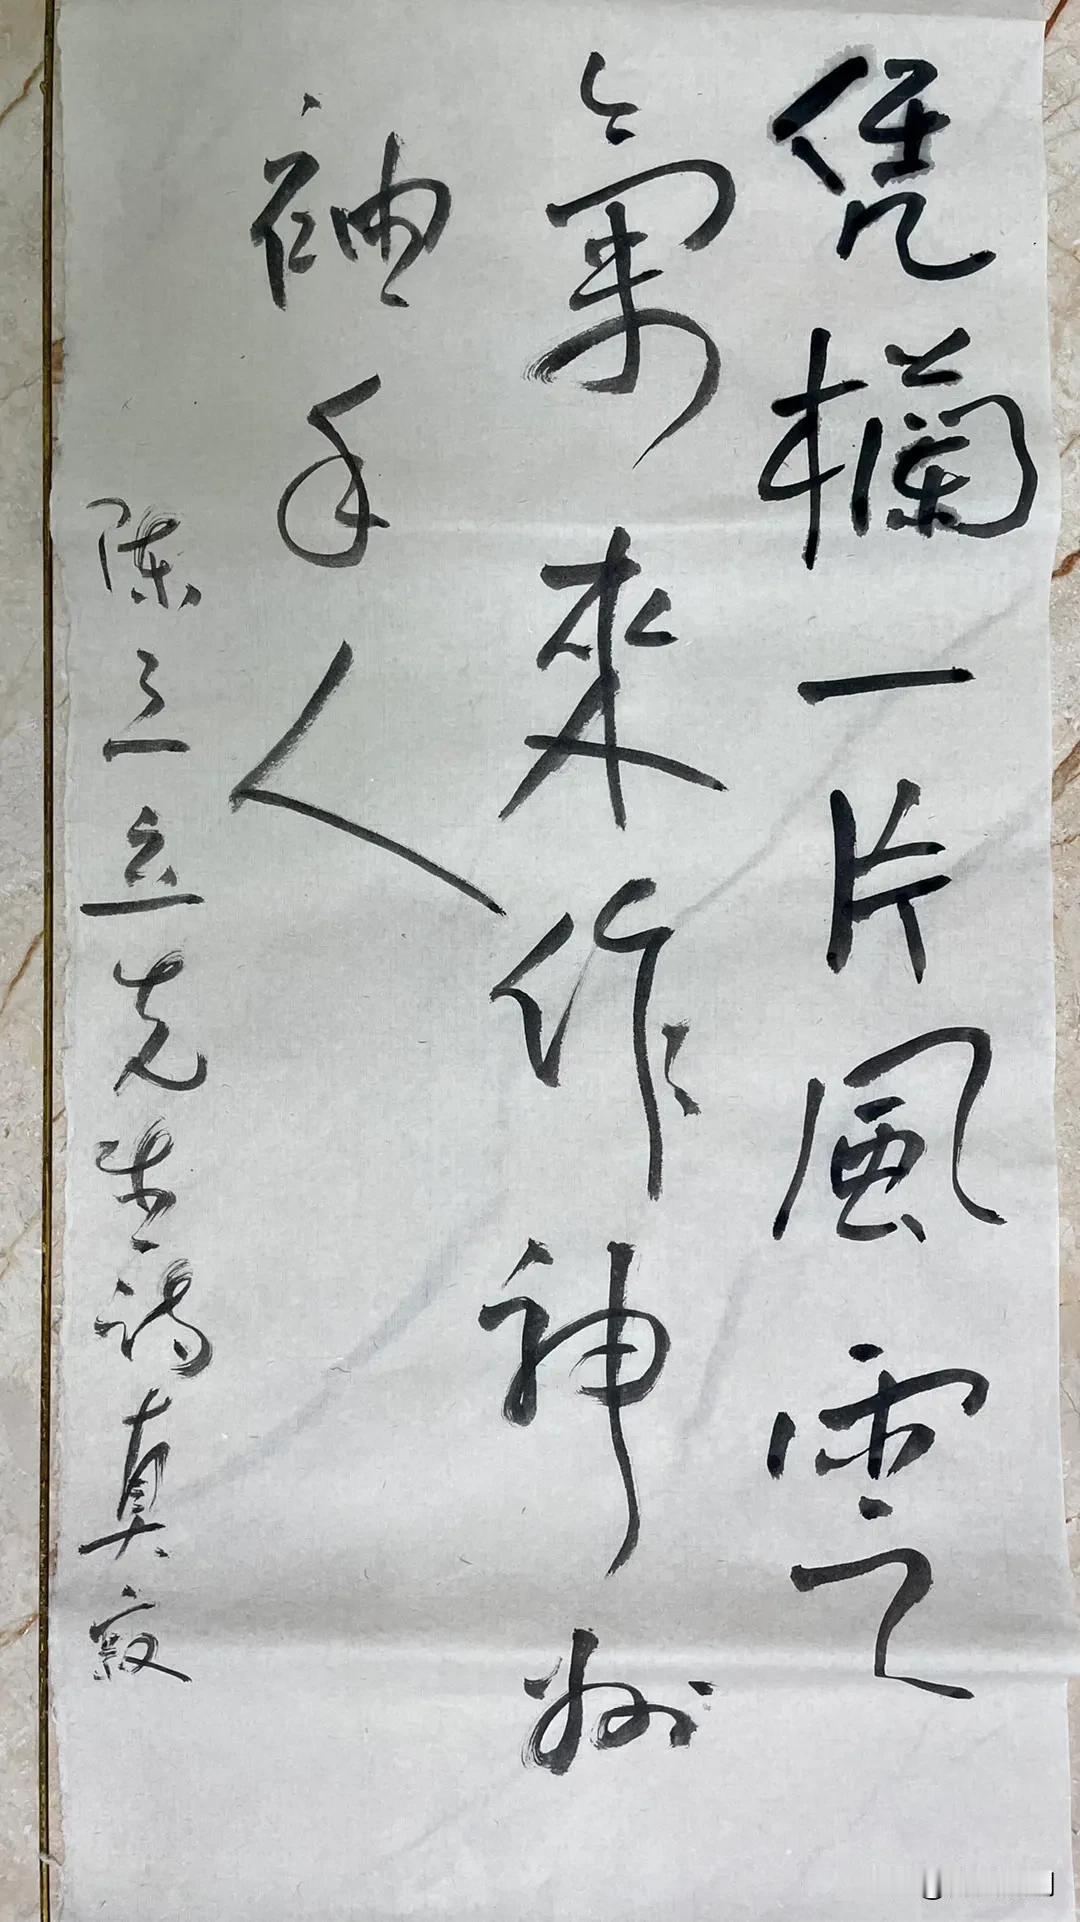 凭欄一片風雲
氣來作神州
袖手人
陳三立先生詩真寂